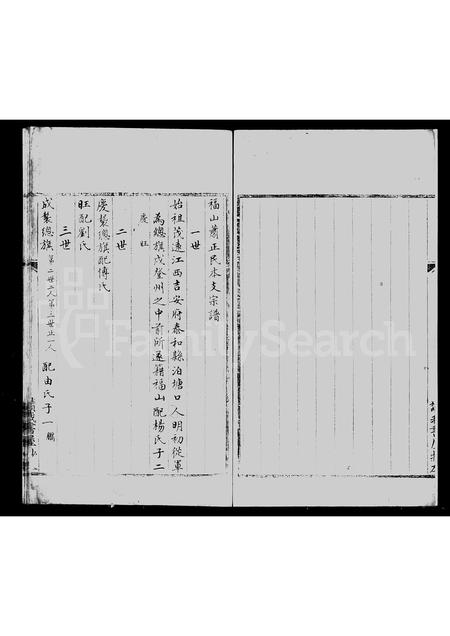 福山蕭正民本支宗譜
一世
始祖茂遠江西吉安府泰和縣泊塘口人明初從軍
為總旗戍登州之中前所遂籍福山配楊氏子二
慶 旺
二世
慶襲總旗配傅氏
旺配劉氏
三世
成襲總旗第二世二人第三世止一人 配由氏子一鵬
FamilySearch